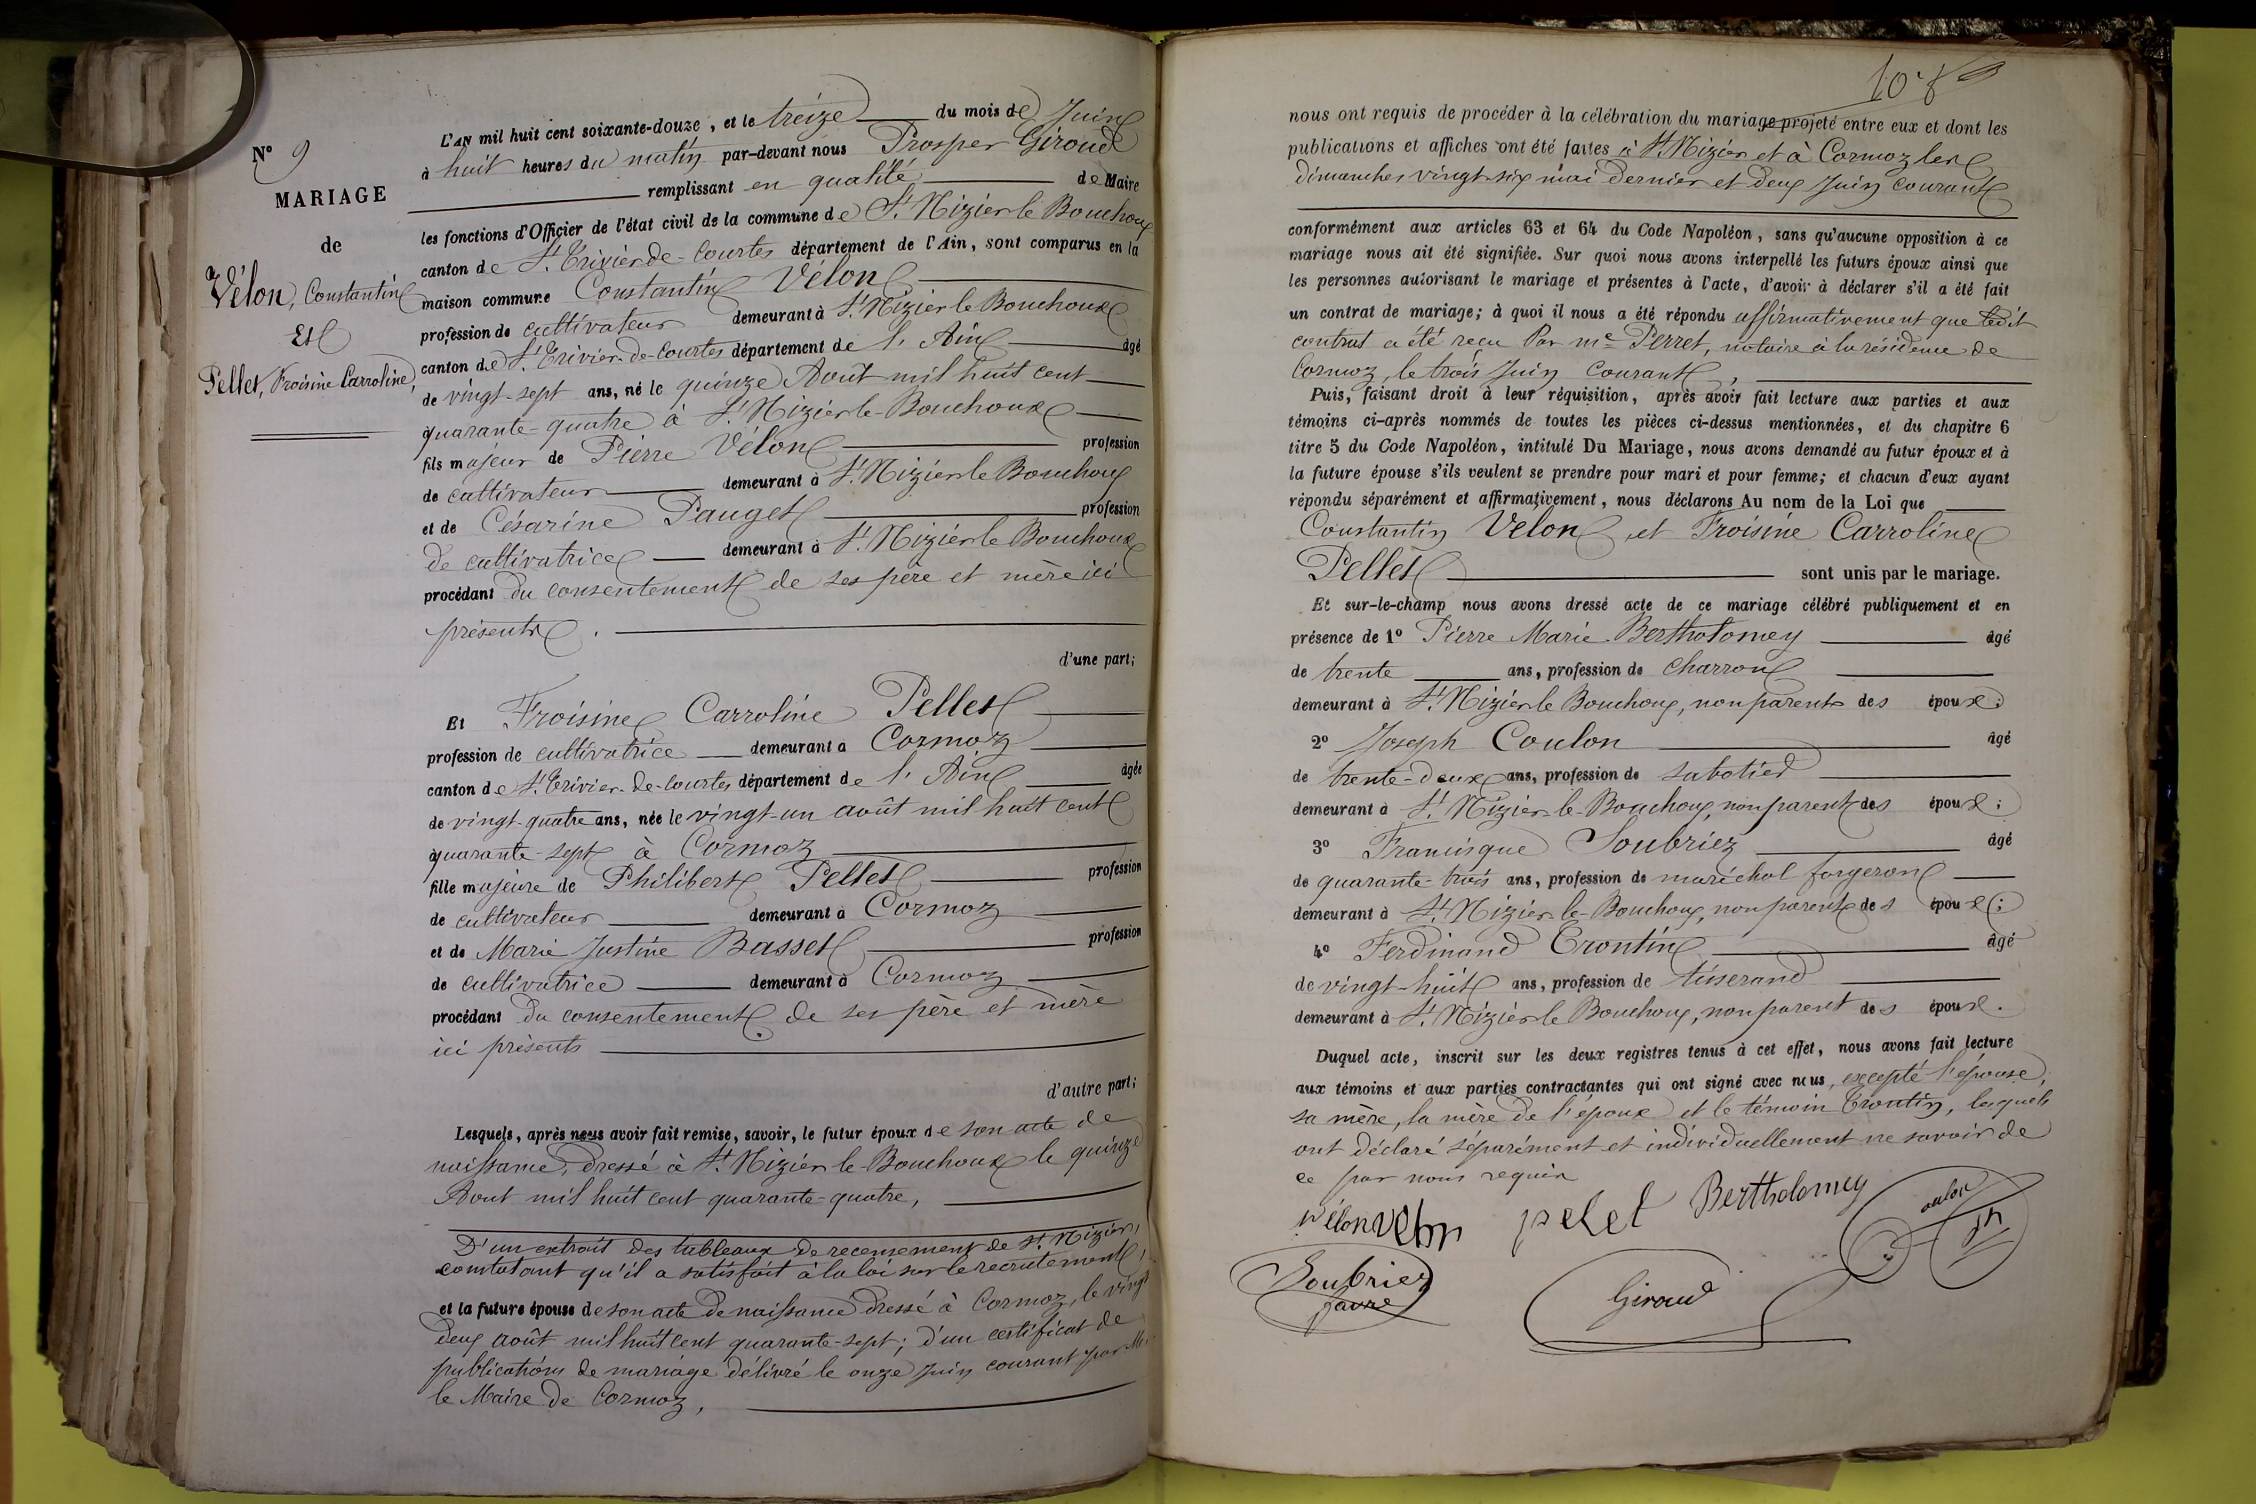 N° 9
MARIAGE
de
Vélon, Constantin
Et
Pellet, Froisine Carroline,
L'AN mil huit cent soixante-douze, et le treize du mois de Juin
à huit heures du matin par-devant nous Prosper Giroud
remplissant en qualité de Maire
les fonctions d'Officier de l'état civil de la commune de St Nizier le Bouchoux
canton de St Trivier-de-Courtes département de l'Ain, sont comparus en la
maison commune Constantin Vélon
profession de cultivateur demeurant à St Nizier le Bouchoux
canton de St Trivier-de-Courtes département de l'Ain âgé
de vingt-sept ans, né le quinze Août mil huit cent
quarante-quatre à St Nizier-le-Bouchoux
fils majeur de Pierre Vélon profession
de cultivateur demeurant à St Nizier le Bouchoux
et de Césarine Pauget profession
de cultivatrice demeurant à St Nizier le Bouchoux
procédant du consentement de ses père et mère ici
présents.
d'une part;
Et Froisine Carroline Pellet
profession de cultivatrice demeurant à Cormoz
canton de St Trivier-de-Courtes département de l'Ain âgée
de vingt-quatre ans, née le vingt-un août mil huit cent
quarante-sept à Cormoz
fille majeure de Philibert Pellet profession
de cultivateur demeurant à Cormoz
et de Marie Justine Basset profession
de cultivatrice demeurant à Cormoz
procédant du consentement de ses père et mère
ici présents
d'autre part;
Lesquels, après nous avoir fait remise, savoir, le futur époux de son acte de
naissance, dressé à St Nizier le-Bouchoux le quinze
Aout mil huit cent quarante-quatre,
D'un extrait des tableaux de recensement de St Nizier,
constatant qu'il a satisfait à la loi sur le recrutement,
et la future épouse de son acte de naissance dressé à Cormoz, le vingt
deux août mil huit cent quarante-sept; d'un certificat de
publications de mariage délivré le onze Juin courant par Mr
le Maire de Cormoz,
nous ont requis de procéder à la célébration du mariage projeté entre eux et dont les
publications et affiches ont été faites à St Nizier et à Cormoz les
dimanches vingt-six mai dernier et deux Juin courant
conformément aux articles 63 et 64 du Code Napoléon, sans qu'aucune opposition à ce
mariage nous ait été signifiée. Sur quoi nous avons interpellé les futurs époux ainsi que
les personnes autorisant le mariage et présentes à l'acte, d'avoir à déclarer s'il a été fait
un contrat de mariage; à quoi il nous a été répondu affirmativement que ledit
contrat a été reçu Par me Perret, notaire à la résidence de
Cormoz, le trois Juin Courant,
Puis, faisant droit à leur réquisition, après avoir fait lecture aux parties et aux
témoins ci-après nommés de toutes les pièces ci-dessus mentionnées, et du chapitre 6
titre 5 du Code Napoléon, intitulé Du Mariage, nous avons demandé au futur époux et à
la future épouse s'ils veulent se prendre pour mari et pour femme; et chacun d'eux ayant
répondu séparément et affirmativement, nous déclarons Au nom de la Loi que
Constantin Velon, et Froisine Carroline
Pellet sont unis par le mariage.
Et sur-le-champ nous avons dressé acte de ce mariage célébré publiquement et en
présence de 1° Pierre Marie Bertholomey âgé
de trente ans, profession de charron
demeurant à St Nizier le Bouchoux, non parent des époux;
2° Joseph Coulon âgé
de trente-deux ans, profession de sabotier
demeurant à St Nizier-le-Bouchoux, non parent des époux;
3° Francisque Soubriez âgé
de quarante-trois ans, profession de maréchal forgeron
demeurant à St Nizier-le-Bouchoux, non parent des époux;
4° Ferdinand Trontin âgé
de vingt-huit ans, profession de tisserand
demeurant à St Nizier le Bouchoux, non parent des époux.
Duquel acte, inscrit sur les deux registres tenus à cet effet, nous avons fait lecture
aux témoins et aux parties contractantes qui ont signé avec nous, excepté l'épouse,
sa mère, la mère de l'époux et le témoin Trontin, lesquels
ont déclaré séparément et individuellement ne savoir de
ce par nous requis
vélon velon pelet Bertholomey
Soubriez
Giroud